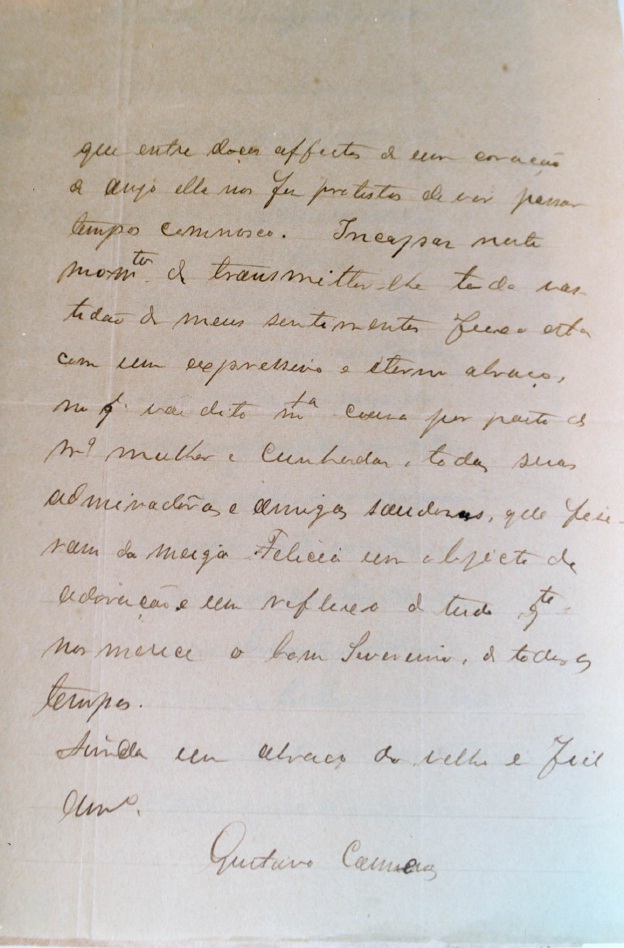 que entre doces affectos de um coração
de anjo ella nos fez protestos de vir passar
tempos comnosco. Incapaz neste
momto de transmittir-lhe toda vas-
tidão de meus sentimentos fecho esta
com um expressivo e eterno abraço,
no q. vae dito mta cousa por parte de
ma mulher e cunhadas, todas suas
admiradôras e amigas saudosas, que fize-
ram da meiga Felicia um objecto de
adoração e um reflexo de tudo qto
nos merece o bom Severino, de todos os
tempos.
Ainda um abraço do velho e fiel
Amo.
Gustavo